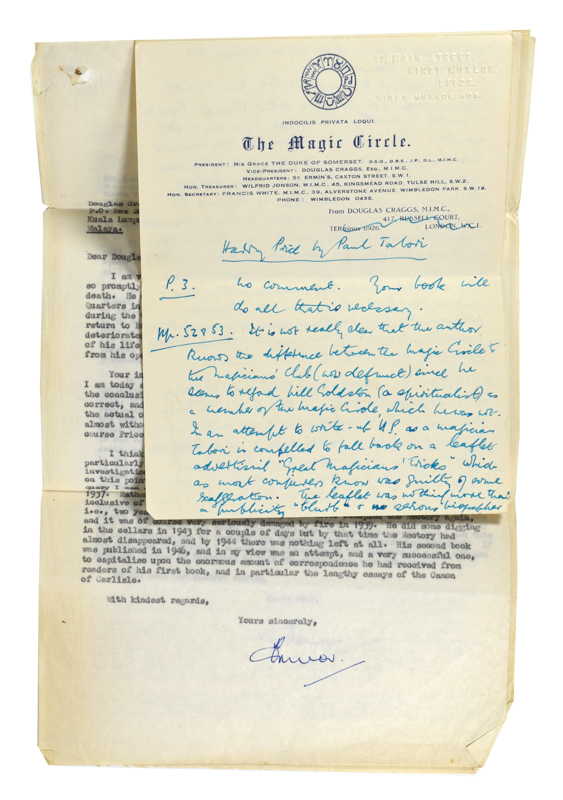 11, MAIN STREET,
KIRBY MUXLOE,
LEICS.
KIRBY MUXLOE
INDOCILIS PRIVATA LOQUI.
The Magic Circle.
PRESIDENT: HIS GRACE THE DUKE OF SOMERSET, D.S.O., O.B.E., J.P., D.L., M.I.M.C.
VICE-PRESIDENT: DOUGLAS CRAGGS, ESQ., M.I.M.C.
HEADQUARTERS: ST. ERMIN'S, CAXTON STREET, S.W.1.
HON. TREASURER: WILFRID JONSON, M.I.M.C., 45, KINGSMEAD ROAD, TULSE HILL, S.W.2.
HON. SECRETARY: FRANCIS WHITE, M.I.M.C., 39, ALVERSTONE AVENUE, WIMBLEDON PARK, S.W.19.
PHONE: WIMBLEDON 0435.
From DOUGLAS CRAGGS, M.I.M.C.,
417, RUSSELL COURT,
TERminus 6926. LONDON, W.C.1.
Harry Price by Paul Tabori
P. 3. No comment. Your book will
do all that is necessary.
pp. 52 & 53. It is not really clear that the author
knows the difference between the Magic Circle &
the Magicians' Club (now defunct) since he
seems to regard Will Goldston (a spiritualist) as
a member of the Magic Circle, which he was not.
In an attempt to write-up H.P. as a magician
Tabori is compelled to fall back on a leaflet
advertising "Great Magicians' Tricks" which
as most conjurers know was guilty of some
exaggeration. The leaflet was nothing more than
a publicity "blurb" & no serious biographer
Douglas Cr
P.O. Box
Kuala Lump
Malaya.
Dear Dougla
I am v
so promptly
death. He
Quarters in
during the
return to
deteriorate
of his life
from his op
Your in
I am today
the conclusi
correct, and
the actual c
almost witho
course Price
I think
particularly
investigation
on this poin
1937.
inclusive of
i.e., two yea
and it was of course very seriously damaged by fire in 1939. He did some digging
in the cellars in 1943 for a couple of days but by that time the Rectory had
almost disappeared, and by 1944 there was nothing left at all. His second book
was published in 1946, and in my view was an attempt, and a very successful one,
to capitalise upon the enormous amount of correspondence he had received from
readers of his first book, and in particular the lengthy essays of the Canon
of Carlisle.
With kindest regards,
Yours sincerely,